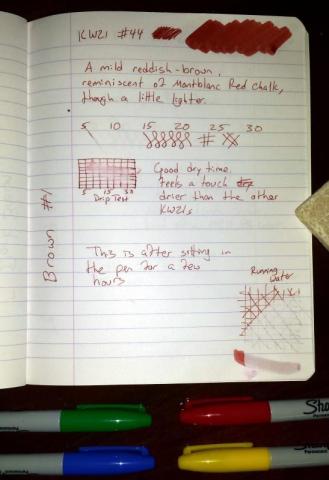 KWZI #44
A mild reddish-brown,
reminiscent of Montblanc Red Chalk,
though a little lighter.
5 10 15 20 25 30
Good dry time.
Feels a touch
drier than the other
KWZIs
5 15 30
Drip Test
Brown #1
This is after sitting in
the pen for a few
hours
Running
Water
Sha